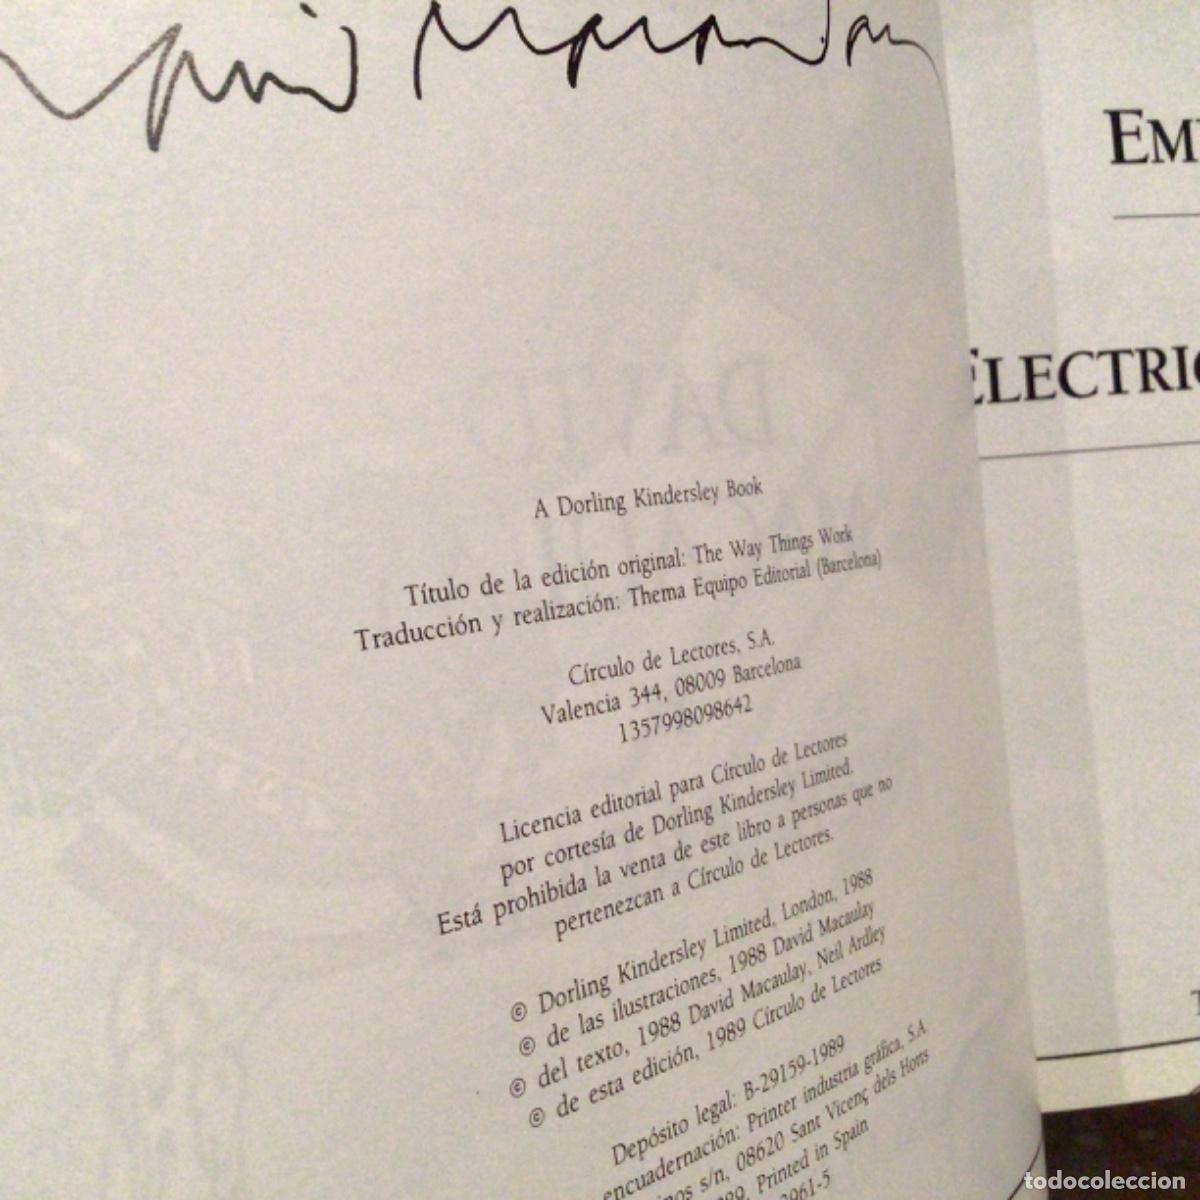 EM
ELECTRIC
A Dorling Kindersley Book
Título de la edición original: The Way Things Work
Traducción y realización: Thema Equipo Editorial (Barcelona)
Círculo de Lectores, S.A.
Valencia 344, 08009 Barcelona
1357998098642
Licencia editorial para Círculo de Lectores
por cortesía de Dorling Kindersley Limited.
Está prohibida la venta de este libro a personas que no
pertenezcan a Círculo de Lectores.
© Dorling Kindersley Limited, London, 1988
© de las ilustraciones, 1988 David Macaulay
© del texto, 1988 David Macaulay, Neil Ardley
© de esta edición, 1989 Círculo de Lectores
Depósito legal: B-29159-1989
encuadernación: Printer industria gráfica, S.A.
s/n, 08620 Sant Vicenç dels Horts
Printed in Spain
2961-5
todocoleccion